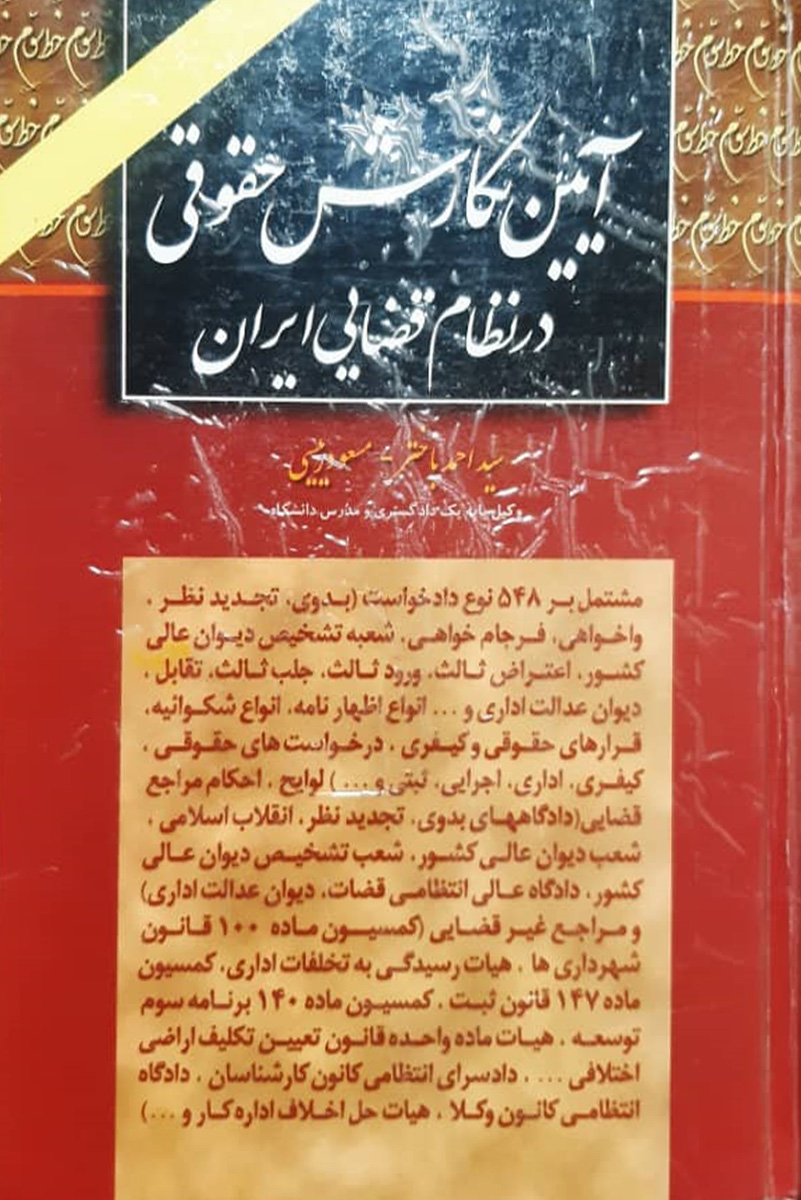 آیین نگارش حقوقی
در نظام قضایی ایران
سید احمد باختر - مسعود رئیسی
وکیل پایه یک دادگستری و مدرس دانشگاه
مشتمل بر ۵۴۸ نوع دادخواست (بدوی، تجدید نظر ،
واخواهی، فرجام خواهی، شعبه تشخیص دیوان عالی
کشور، اعتراض ثالث، ورود ثالث، جلب ثالث، تقابل ،
دیوان عدالت اداری و ... انواع اظهار نامه، انواع شکوائیه،
قرارهای حقوقی و کیفری ، درخواست های حقوقی ،
کیفری، اداری، اجرایی، ثبتی و ... ) لوایح ، احکام مراجع
قضایی(دادگاههای بدوی، تجدید نظر، انقلاب اسلامی ،
شعب دیوان عالی کشور، شعب تشخیص دیوان عالی
کشور، دادگاه عالی انتظامی قضات، دیوان عدالت اداری)
و مراجع غیر قضایی (کمسیون ماده ۱۰۰ قانون
شهرداری ها ، هیات رسیدگی به تخلفات اداری، کمسیون
ماده ۱۴۷ قانون ثبت ، کمسیون ماده ۱۴۰ برنامه سوم
توسعه ، هیات ماده واحده قانون تعیین تکلیف اراضی
اختلافی ... ، دادسرای انتظامی کانون کارشناسان ، دادگاه
انتظامی کانون وکلا ، هیات حل اخلاف اداره کار و ...)